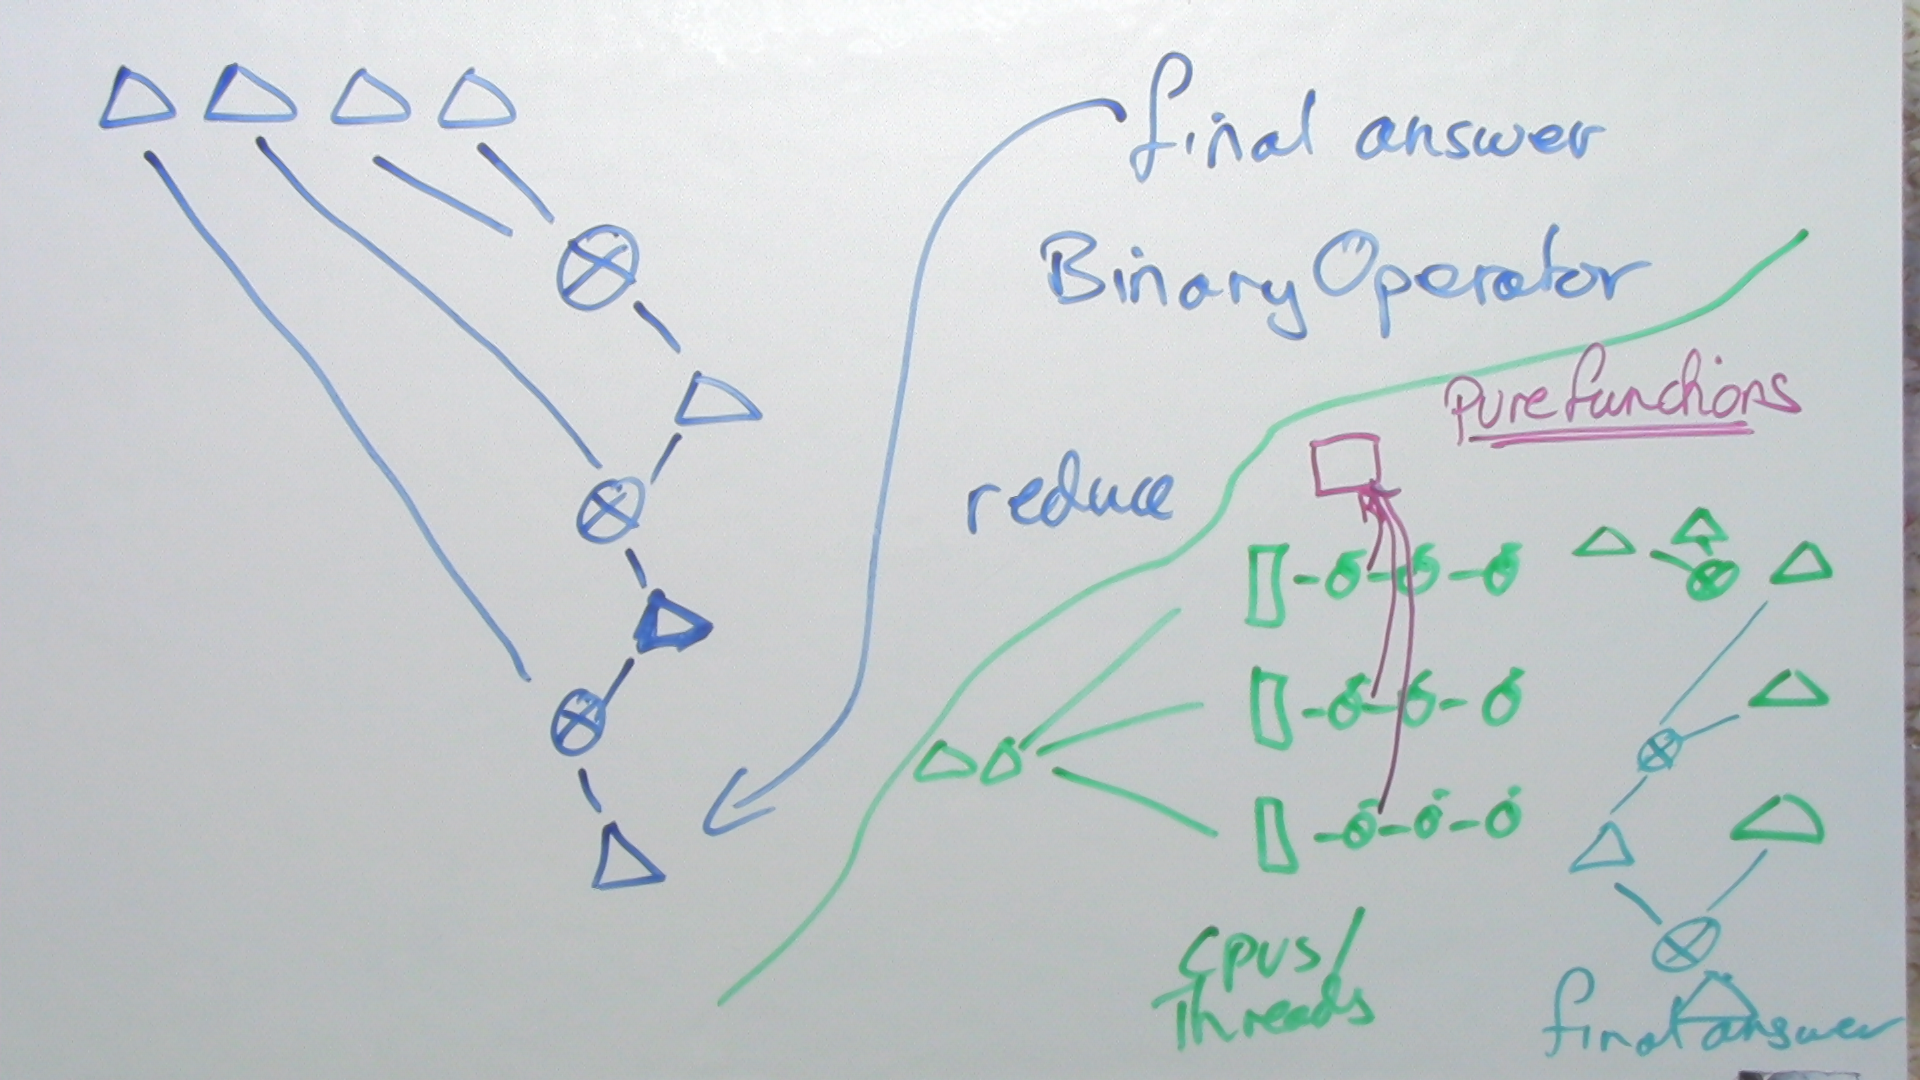 final answer
Binary Operator
Pure functions
reduce
Cpus/
Threads
final answer